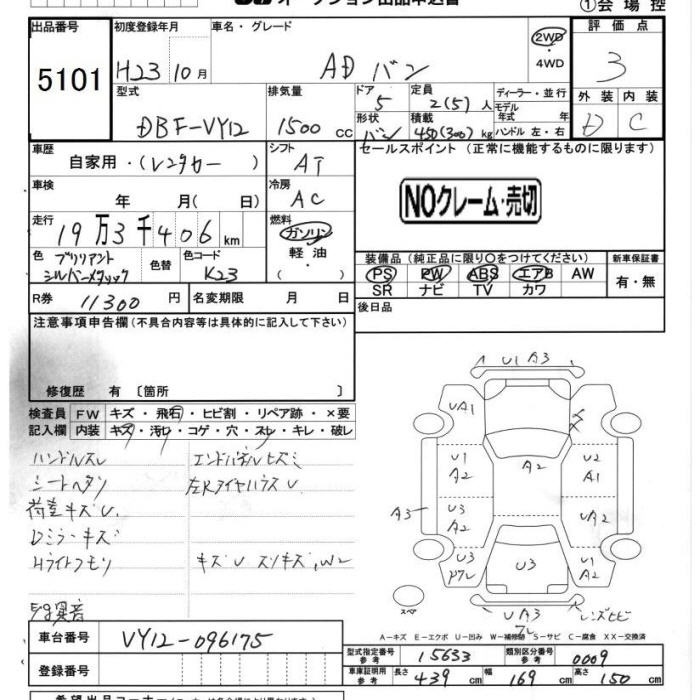 オークション出品申込書
①会場控
出品番号 初度登録年月 車名・グレード 評価点
5101 H23 10月 ADバン 2WD・4WD 3
型式 排気量 ドア 定員 ディーラー・並行 外装 内装
DBF-VY12 1500cc 5 2(5)人 モデル年式 年 D C
形状 積載
バン 450(300)kg ハンドル 左・右
車歴 シフト セールスポイント (正常に機能するものに限ります)
自家用・(レンタカー) AT
車検 冷房
年 月(日) AC
NOクレーム・売切
走行 燃料
19万3千406km ガソリン
軽油
・( )
色 色替 色コード 装備品 (純正品に限り○をつけてください) 新車保証書
ブリリアント
シルバーメタリック K23
PS PW ABS エアB AW 有・無
SR ナビ TV カワ
R券 11300円 名変期限 月 日 後日品
注意事項申告欄(不具合内容等は具体的に記入して下さい)
修復歴 有 〔箇所 〕
検査員 FW キズ・飛石・ヒビ割・リペア跡・×要
記入欄 内装 キズ・汚れ・コゲ・穴・スレ・キレ・破レ
ハンドルスレ
シートヘタリ
荷室キズU
Dミラーキズ
Hライトクモリ
エンドパネルヒズミ
左RタイヤハウスU
キズU スリキズ,W2
U1 A3
UA1
U1 A2
A2
U2 A1
A3
U3 A2
UA2
U3
U3
UA2
スペア
UA3
レンズヒビ
A-キズ E-エクボ U-凹み W-補修跡 S-サビ C-腐食 XX-交換済
車台番号 VY12-096175
型式指定番号 参考 15633 類別区分番号 参考 0009
登録番号
車庫証明用 参考 長さ 439cm 幅 169cm 高さ 150cm